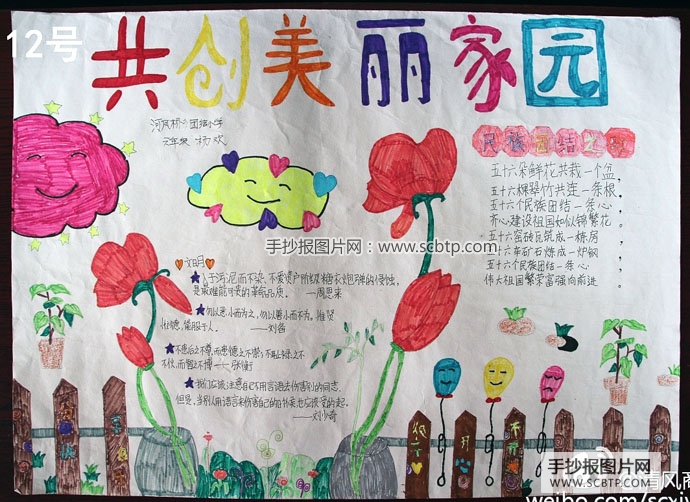 12号
共创美丽家园
河凤桥 团结小学
五年级 杨欢
民族团结之
五十六朵鲜花共栽一个盆，
五十六棵翠竹共连一条根。
五十六个民族团结一条心，
齐心建设祖国如似锦繁花。
五十六窑砖瓦筑成一栋房，
五十六车矿石炼成一炉钢，
五十六个民族团结一条心，
伟大祖国繁荣富强向前进。
手抄报图片网：www.scbtp.com
文明
入于污泥而不染、不受资产阶级糖衣炮弹的侵蚀，
是最难能可贵的革命品质。——周恩来
勿以恶小而为之，勿以善小而不为。惟贤
惟德，能服于人。——刘备
不患位之不尊，而患德之不崇；不耻禄之不
不伙，而智之不博——张衡
我们应该注意自己不用言语去伤害别的同志，
但是，当别人用语言来伤害自己的时候，也应该受的起。
——刘少奇
手抄报图片网
WWW.SCBTP.COM
清风商
weibo.com/scyx